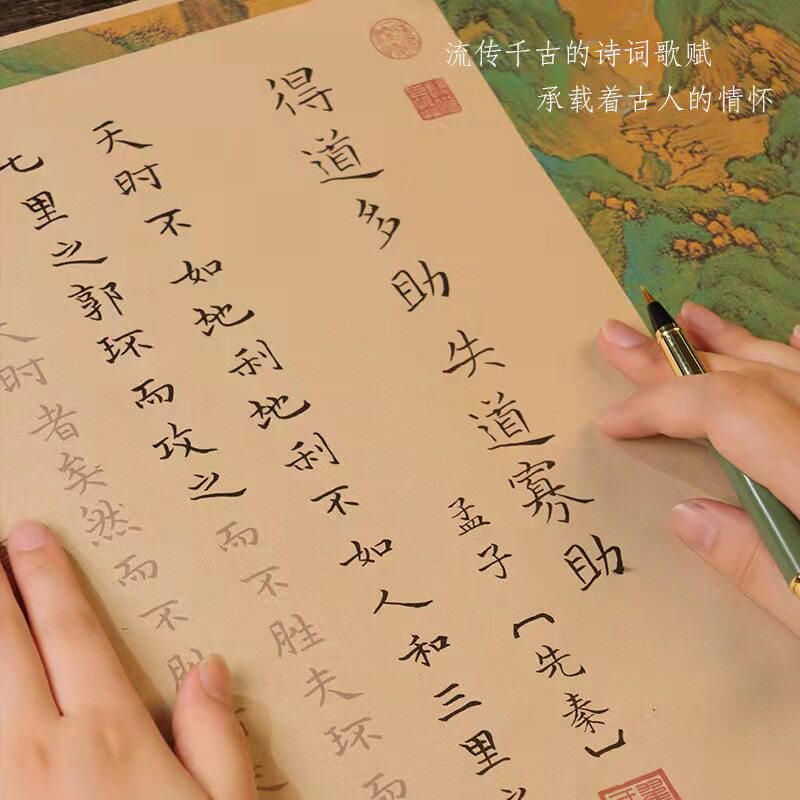 流传千古的诗词歌赋
承载着古人的情怀
得道多助失道寡助
孟子【先秦】
天时不如地利地利不如人和三里之
七里之郭环而攻之而不胜夫环而
天时者矣然而不